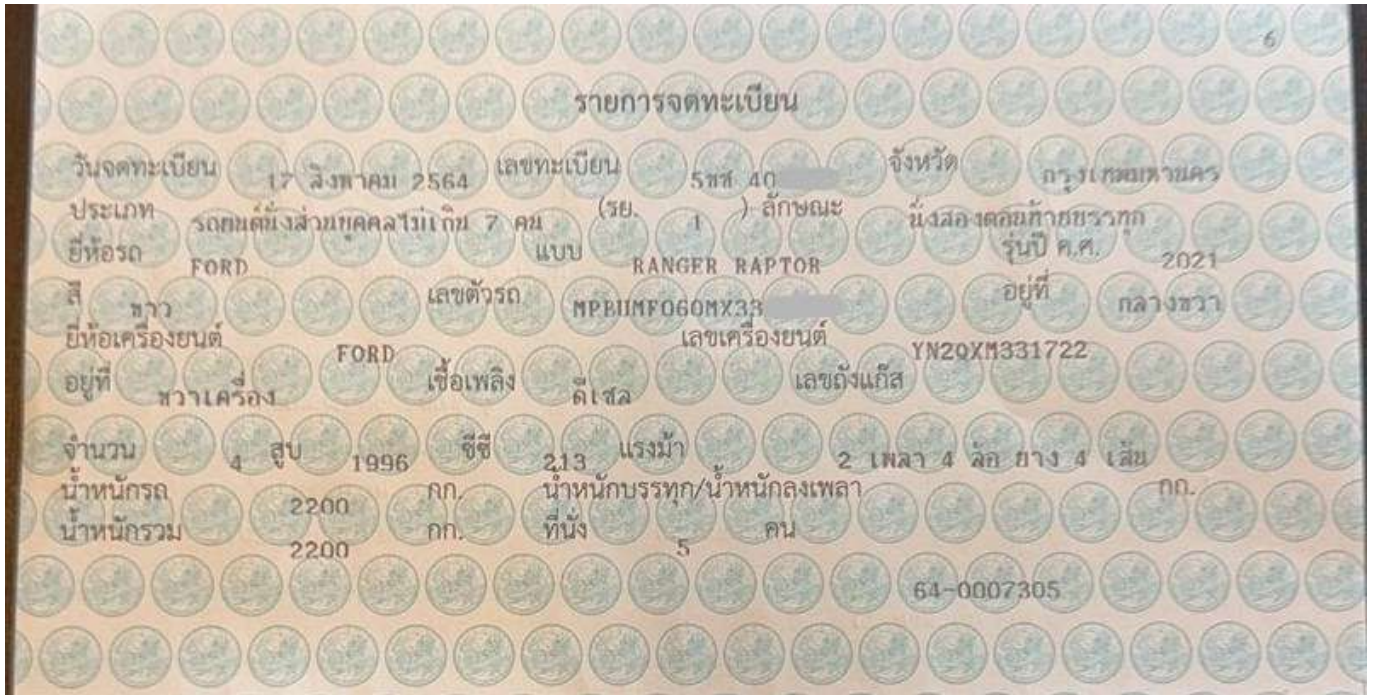 6
รายการจดทะเบียน
วันจดทะเบียน 17 สิงหาคม 2564 เลขทะเบียน 5ขศ 40 จังหวัด กรุงเทพมหานคร
ประเภท รถยนต์นั่งส่วนบุคคลไม่เกิน 7 คน (รย. 1 ) ลักษณะ นั่งสองตอนท้ายบรรทุก
ยี่ห้อรถ FORD แบบ RANGER RAPTOR รุ่นปี ค.ศ. 2021
สี ขาว เลขตัวรถ MPBUMF060MX33 อยู่ที่ กลางขวา
ยี่ห้อเครื่องยนต์ FORD เลขเครื่องยนต์ YN2QXM331722
อยู่ที่ ขวาเครื่อง เชื้อเพลิง ดีเซล เลขถังแก๊ส
จำนวน 4 สูบ 1996 ซีซี 213 แรงม้า 2 เพลา 4 ล้อ ยาง 4 เส้น
น้ำหนักรถ 2200 กก. น้ำหนักบรรทุก/น้ำหนักลงเพลา กก.
น้ำหนักรวม 2200 กก. ที่นั่ง 5 คน
64-0007305